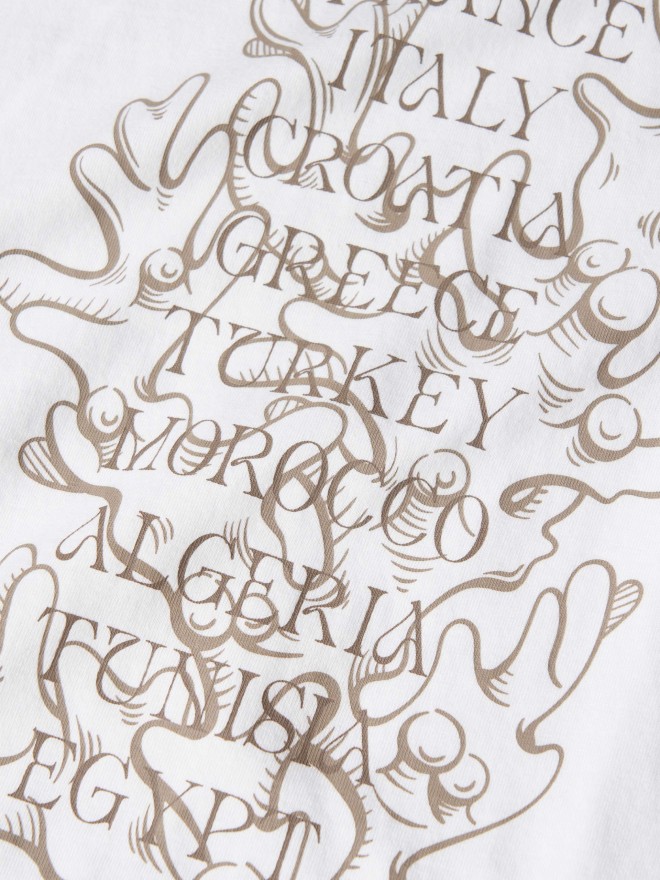 FRANCE
ITALY
CROATIA
GREECE
TURKEY
MOROCCO
ALGERIA
TUNISIA
EGYPT